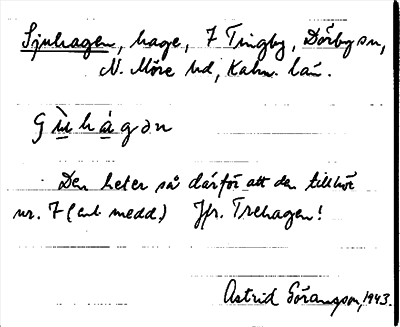 Sjuhagen, hage, 7 Tingby, Dörby sn,
N. Möre hd, Kalm. län.
Gùhágən
Den heter så därför att den tillhör
nr. 7 (enl. medd.) Jfr. Trehagen!
Astrid Göransson, 1943.